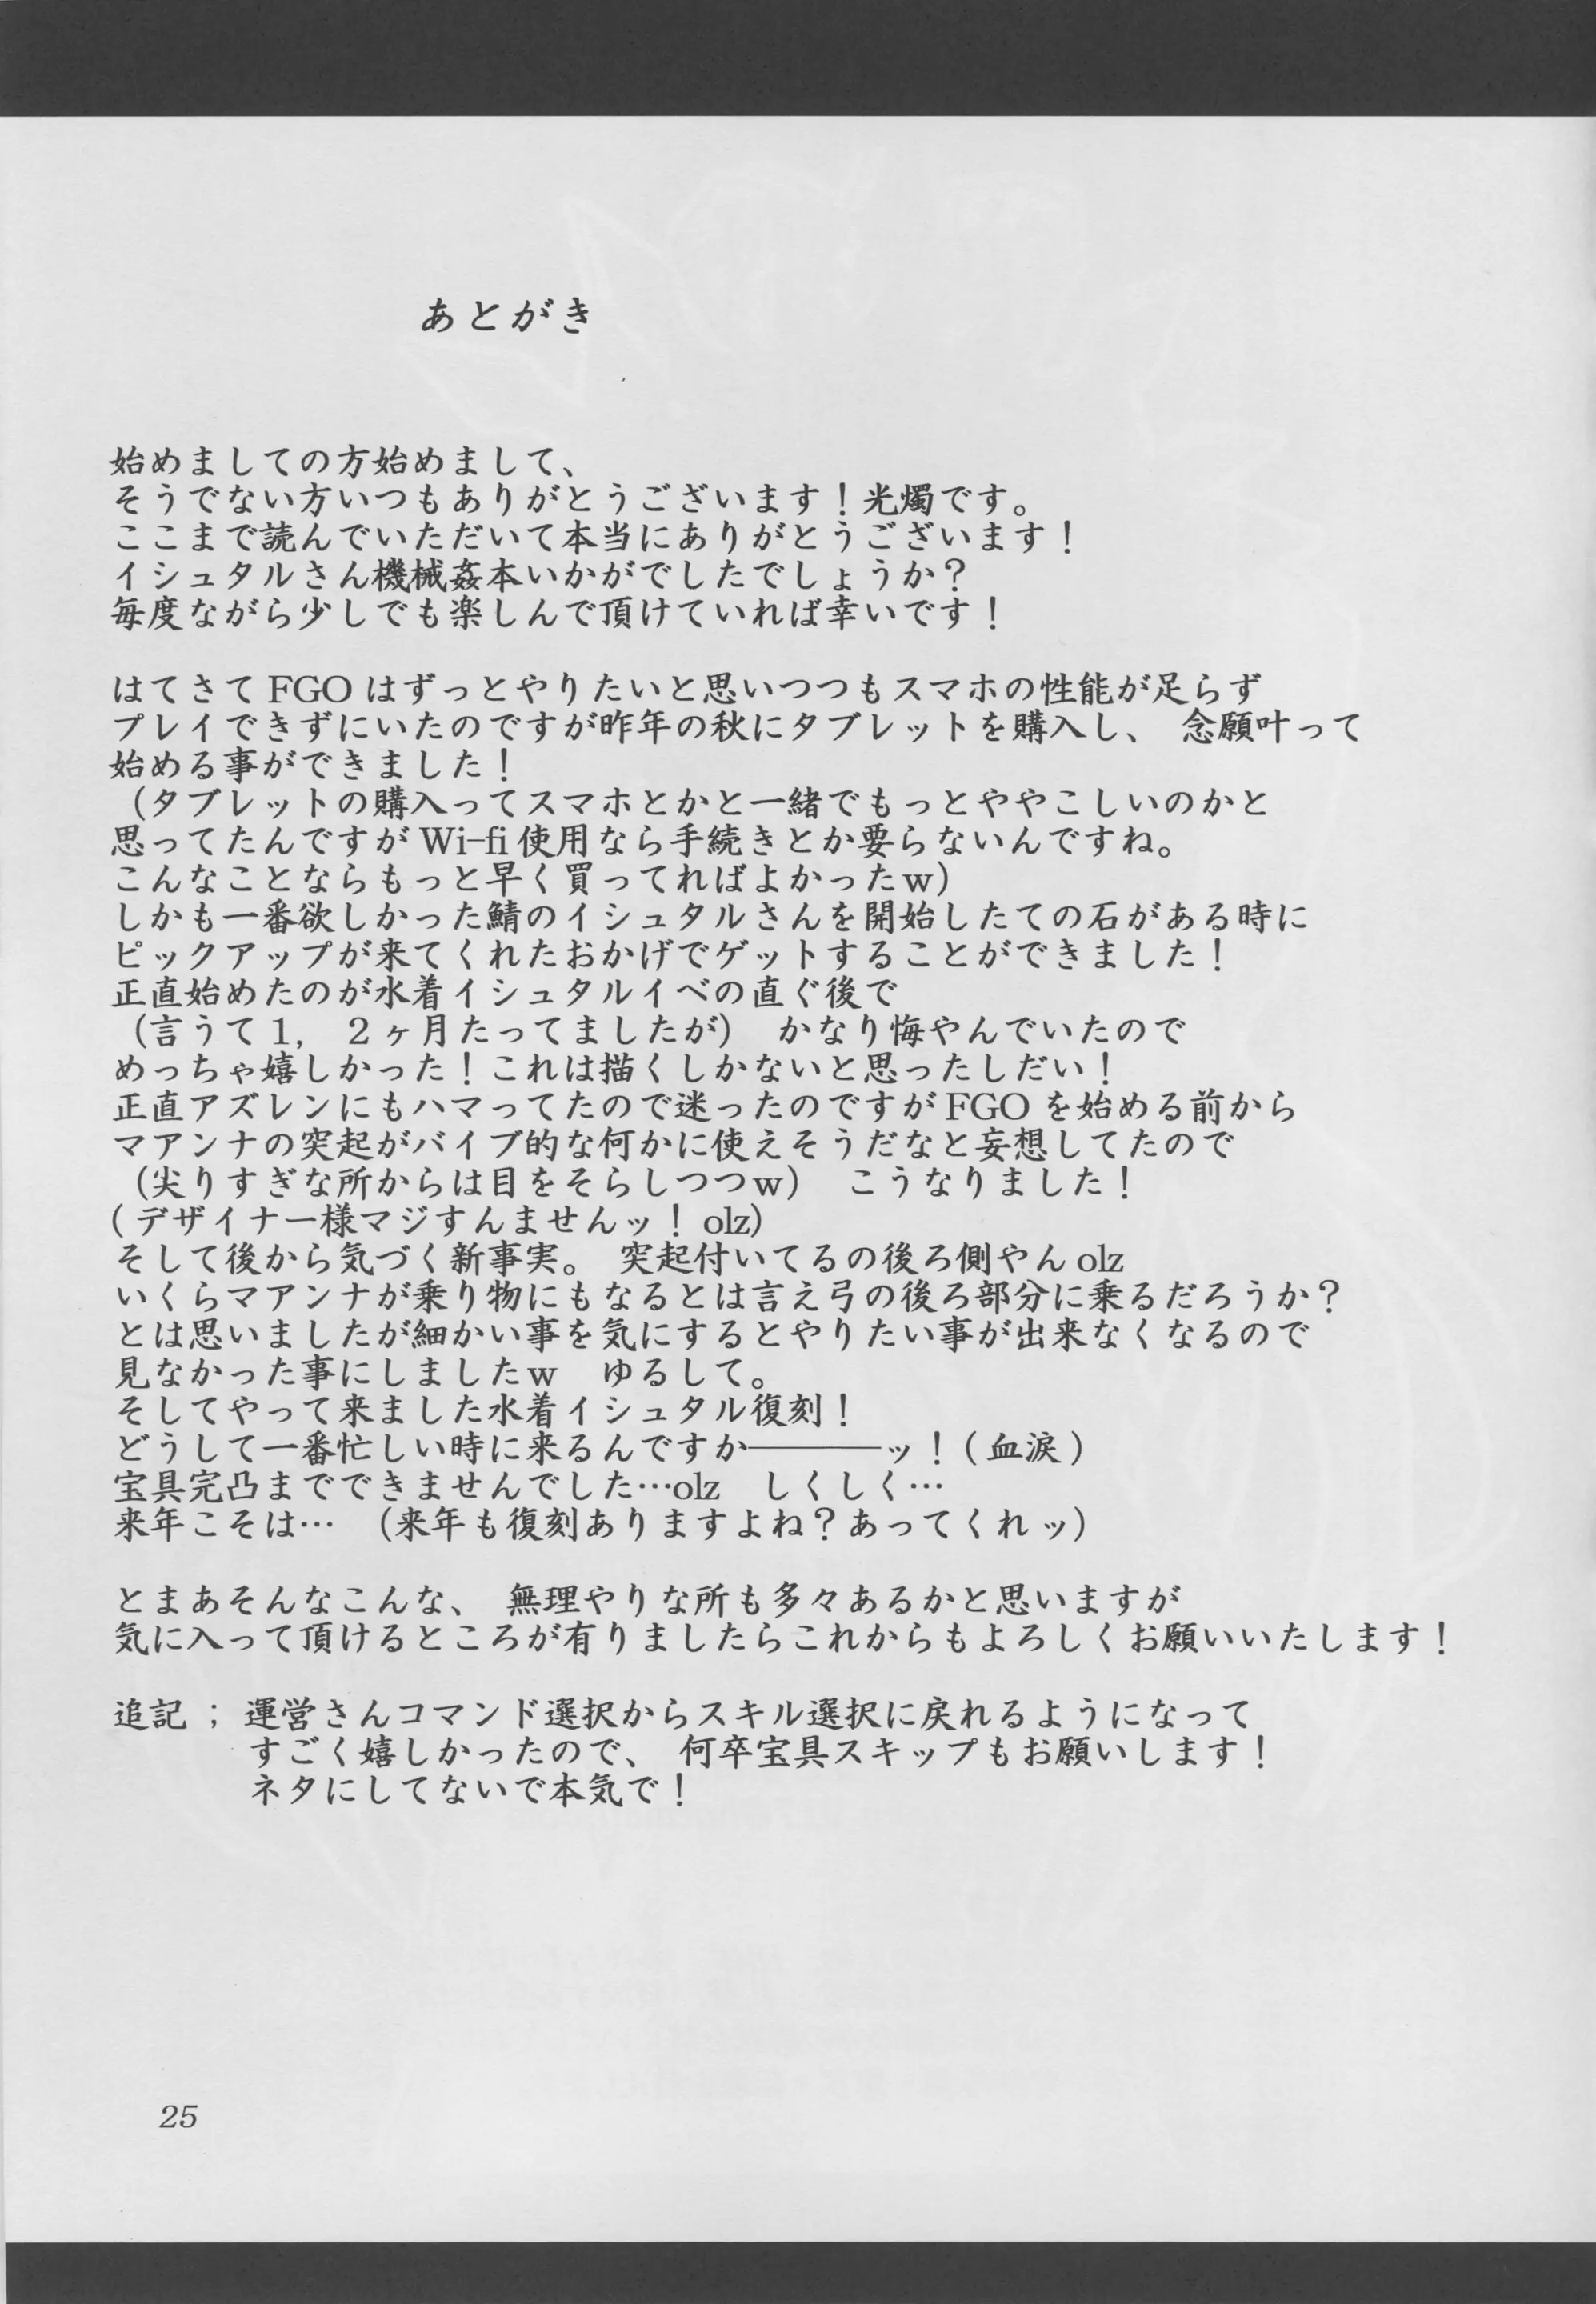 あとがき
始めましての方始めまして、
そうでない方いつもありがとうございます！光燭です。
ここまで読んでいただいて本当にありがとうございます！
イシュタルさん機械姦本いかがでしたでしょうか？
毎度ながら少しでも楽しんで頂けていれば幸いです！
はてさて FGO はずっとやりたいと思いつつもスマホの性能が足らず
プレイできずにいたのですが昨年の秋にタブレットを購入し、 念願叶って
始める事ができました！
（タブレットの購入ってスマホとかと一緒でもっとややこしいのかと
思ってたんですが Wi-fi 使用なら手続きとか要らないんですね。
こんなことならもっと早く買ってればよかったｗ）
しかも一番欲しかった鯖のイシュタルさんを開始したての石がある時に
ピックアップが来てくれたおかげでゲットすることができました！
正直始めたのが水着イシュタルイベの直ぐ後で
（言うて１，２ヶ月たってましたが） かなり悔やんでいたので
めっちゃ嬉しかった！これは描くしかないと思ったしだい！
正直アズレンにもハマってたので迷ったのですが FGO を始める前から
マアンナの突起がバイブ的な何かに使えそうだなと妄想してたので
（尖りすぎな所からは目をそらしつつｗ） こうなりました！
(デザイナー様マジすんませんッ！ olz)
そして後から気づく新事実。 突起付いてるの後ろ側やん olz
いくらマアンナが乗り物にもなるとは言え弓の後ろ部分に乗るだろうか？
とは思いましたが細かい事を気にするとやりたい事が出来なくなるので
見なかった事にしましたｗ ゆるして。
そしてやって来ました水着イシュタル復刻！
どうして一番忙しい時に来るんですか――――ッ！（血涙）
宝具完凸までできませんでした…olz しくしく…
来年こそは… （来年も復刻ありますよね？あってくれッ）
とまあそんなこんな、 無理やりな所も多々あるかと思いますが
気に入って頂けるところが有りましたらこれからもよろしくお願いいたします！
追記 ； 運営さんコマンド選択からスキル選択に戻れるようになって
すごく嬉しかったので、 何卒宝具スキップもお願いします！
ネタにしてないで本気で！
25